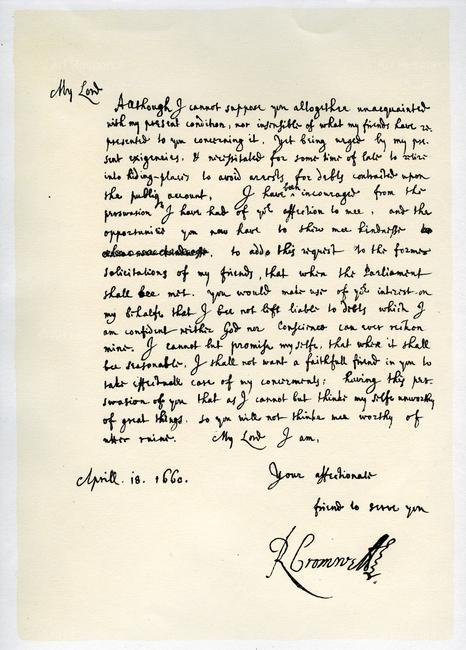 My Lord
Allthough I cannot suppose you alltogether unacquainted
with my present condition, nor insensible of what my friends have re-
presented to you concerning it. Yet being urged by my pre-
sent exigencies, & necessitated for some time of late to retire
into hiding-places to avoid arrests for debts contracted upon
the publiq account, I have been incouraged from the
perswasion I have had of yor affection to mee, and the
opportunitie you now have to shew mee kindnesse to
, to adde this request to the former
solicitations of my friends, that when the Parliament
shall bee met. you would make use of yor interest on
my behalfe that I bee not left liable to debts which I
am confident neither God nor Conscience can ever reckon
mine. I cannot but promise my selfe, that when it shall
bee seasonable, I shall not want a faithfull friend in you to
take effectuall care of my concernments; having this per-
swasion of you that as I cannot but thinke my selfe unworthy
of great things. so you will not thinke mee worthy of
utter ruine. My Lord I am,
Aprill. 18. 1660. Your affectionate
friend to serve you
R Cromwell